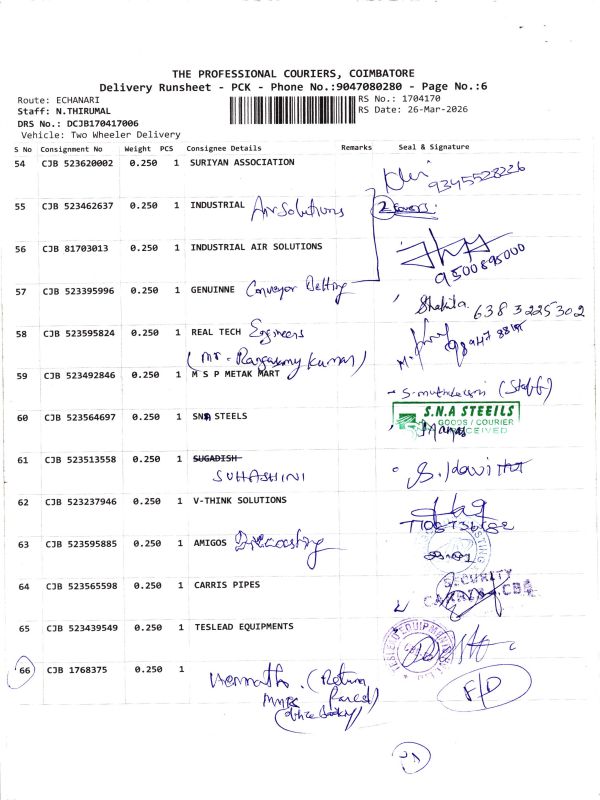 THE PROFESSIONAL COURIERS, COIMBATORE
Delivery Runsheet - PCK - Phone No.:9047080280 - Page No.:6
Route: ECHANARI
RS No.: 1704170
Staff: N.THIRUMAL
RS Date: 26-Mar-2026
DRS No.: DCJB170417006
Vehicle: Two Wheeler Delivery
S No Consignment No Weight PCS Consignee Details Remarks Seal & Signature
54 CJB 523620002 0.250 1 SURIYAN ASSOCIATION
9345528226
55 CJB 523462637 0.250 1 INDUSTRIAL Air Solutions 2 Covers
56 CJB 81703013 0.250 1 INDUSTRIAL AIR SOLUTIONS
9500895000
57 CJB 523395996 0.250 1 GENUINNE Conveyor Belting
Shakila 6383225302
58 CJB 523595824 0.250 1 REAL TECH Engineers
(Mr. Rangasamy Kumar)
59 CJB 523492846 0.250 1 M S P METAK MART
(Staff)
60 CJB 523564697 0.250 1 SNA STEELS
S.N.A STEEILS
GOODS / COURIER
RECEIVED
61 CJB 523513558 0.250 1 SUGADISH
SUHASHINI
62 CJB 523237946 0.250 1 V-THINK SOLUTIONS
63 CJB 523595885 0.250 1 AMIGOS Diecasting
64 CJB 523565598 0.250 1 CARRIS PIPES
SECURITY
65 CJB 523439549 0.250 1 TESLEAD EQUIPMENTS
66 CJB 1768375 0.250 1
(Return
Parcel)
F/D